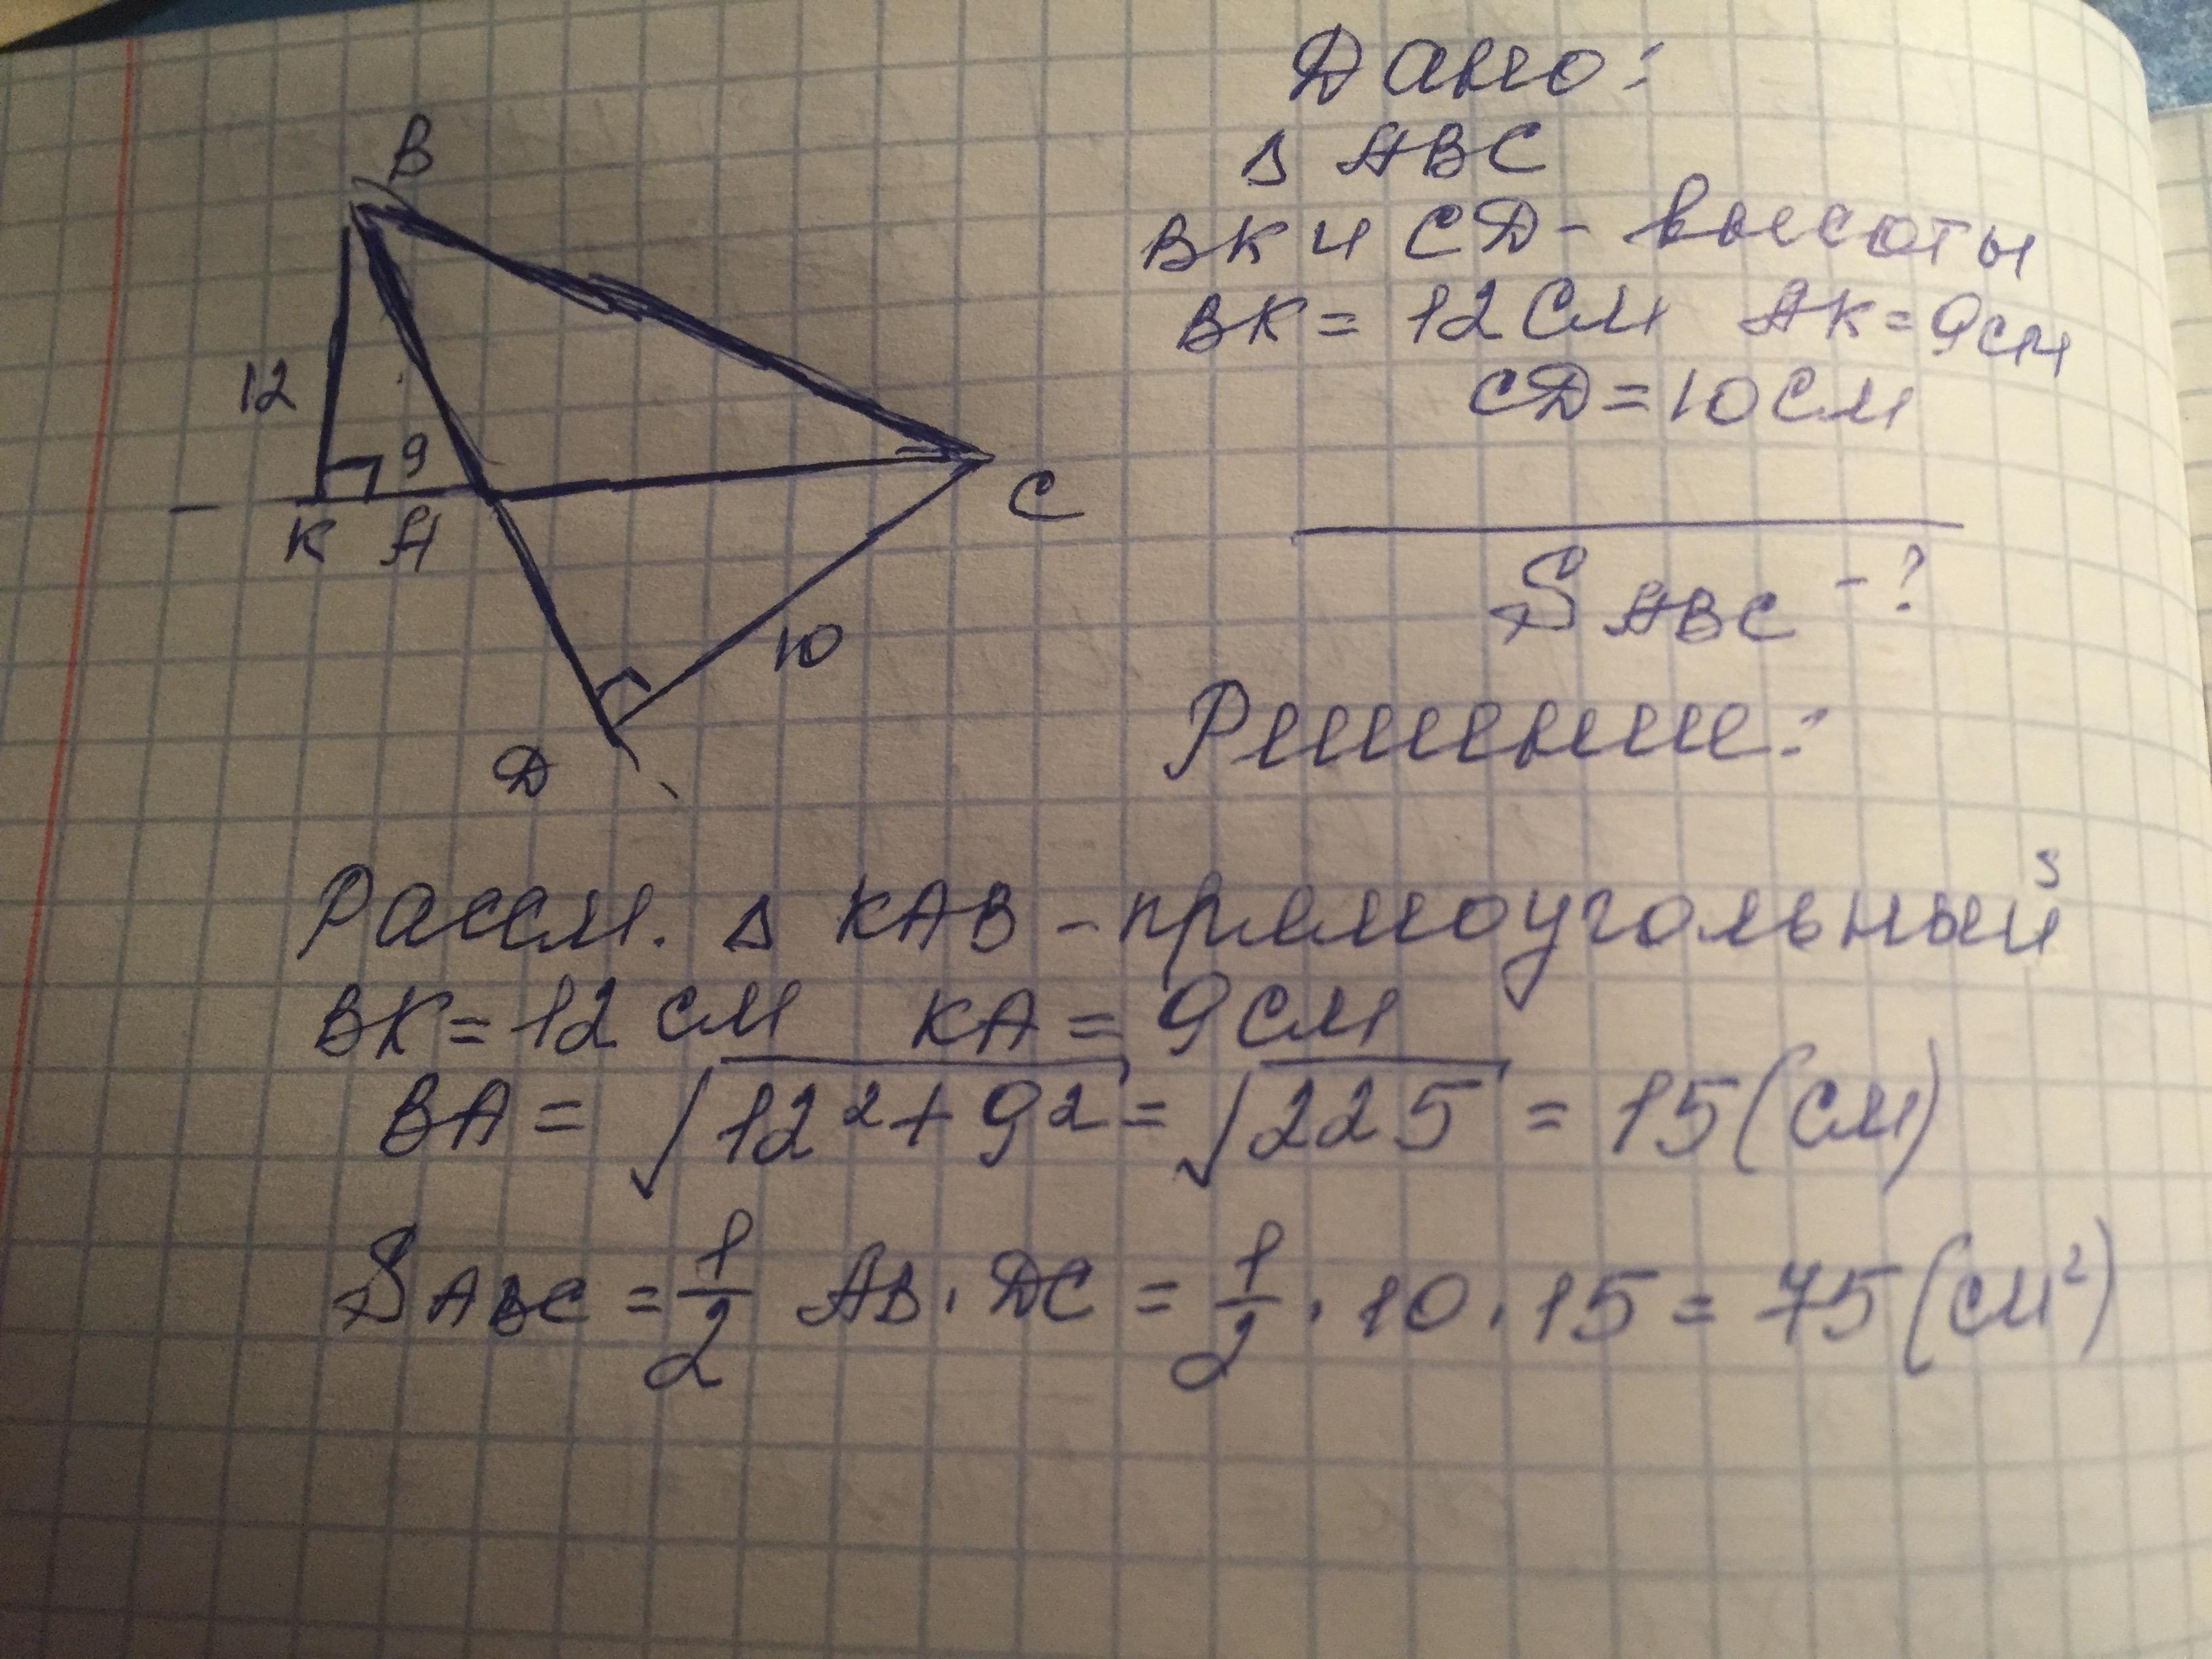 Дано:
Δ ABC
BK и CD - высоты
BK = 12 см AK = 9 см
CD = 10 см
S ABC - ?
Решение:
B
12
9
K A
C
10
D
Рассм. Δ KAB - прямоугольный
BK = 12 см KA = 9 см
BA = √12² + 9² = √225 = 15 (см)
S ABC = 1/2 AB · DC = 1/2 · 10 · 15 = 75 (см²)